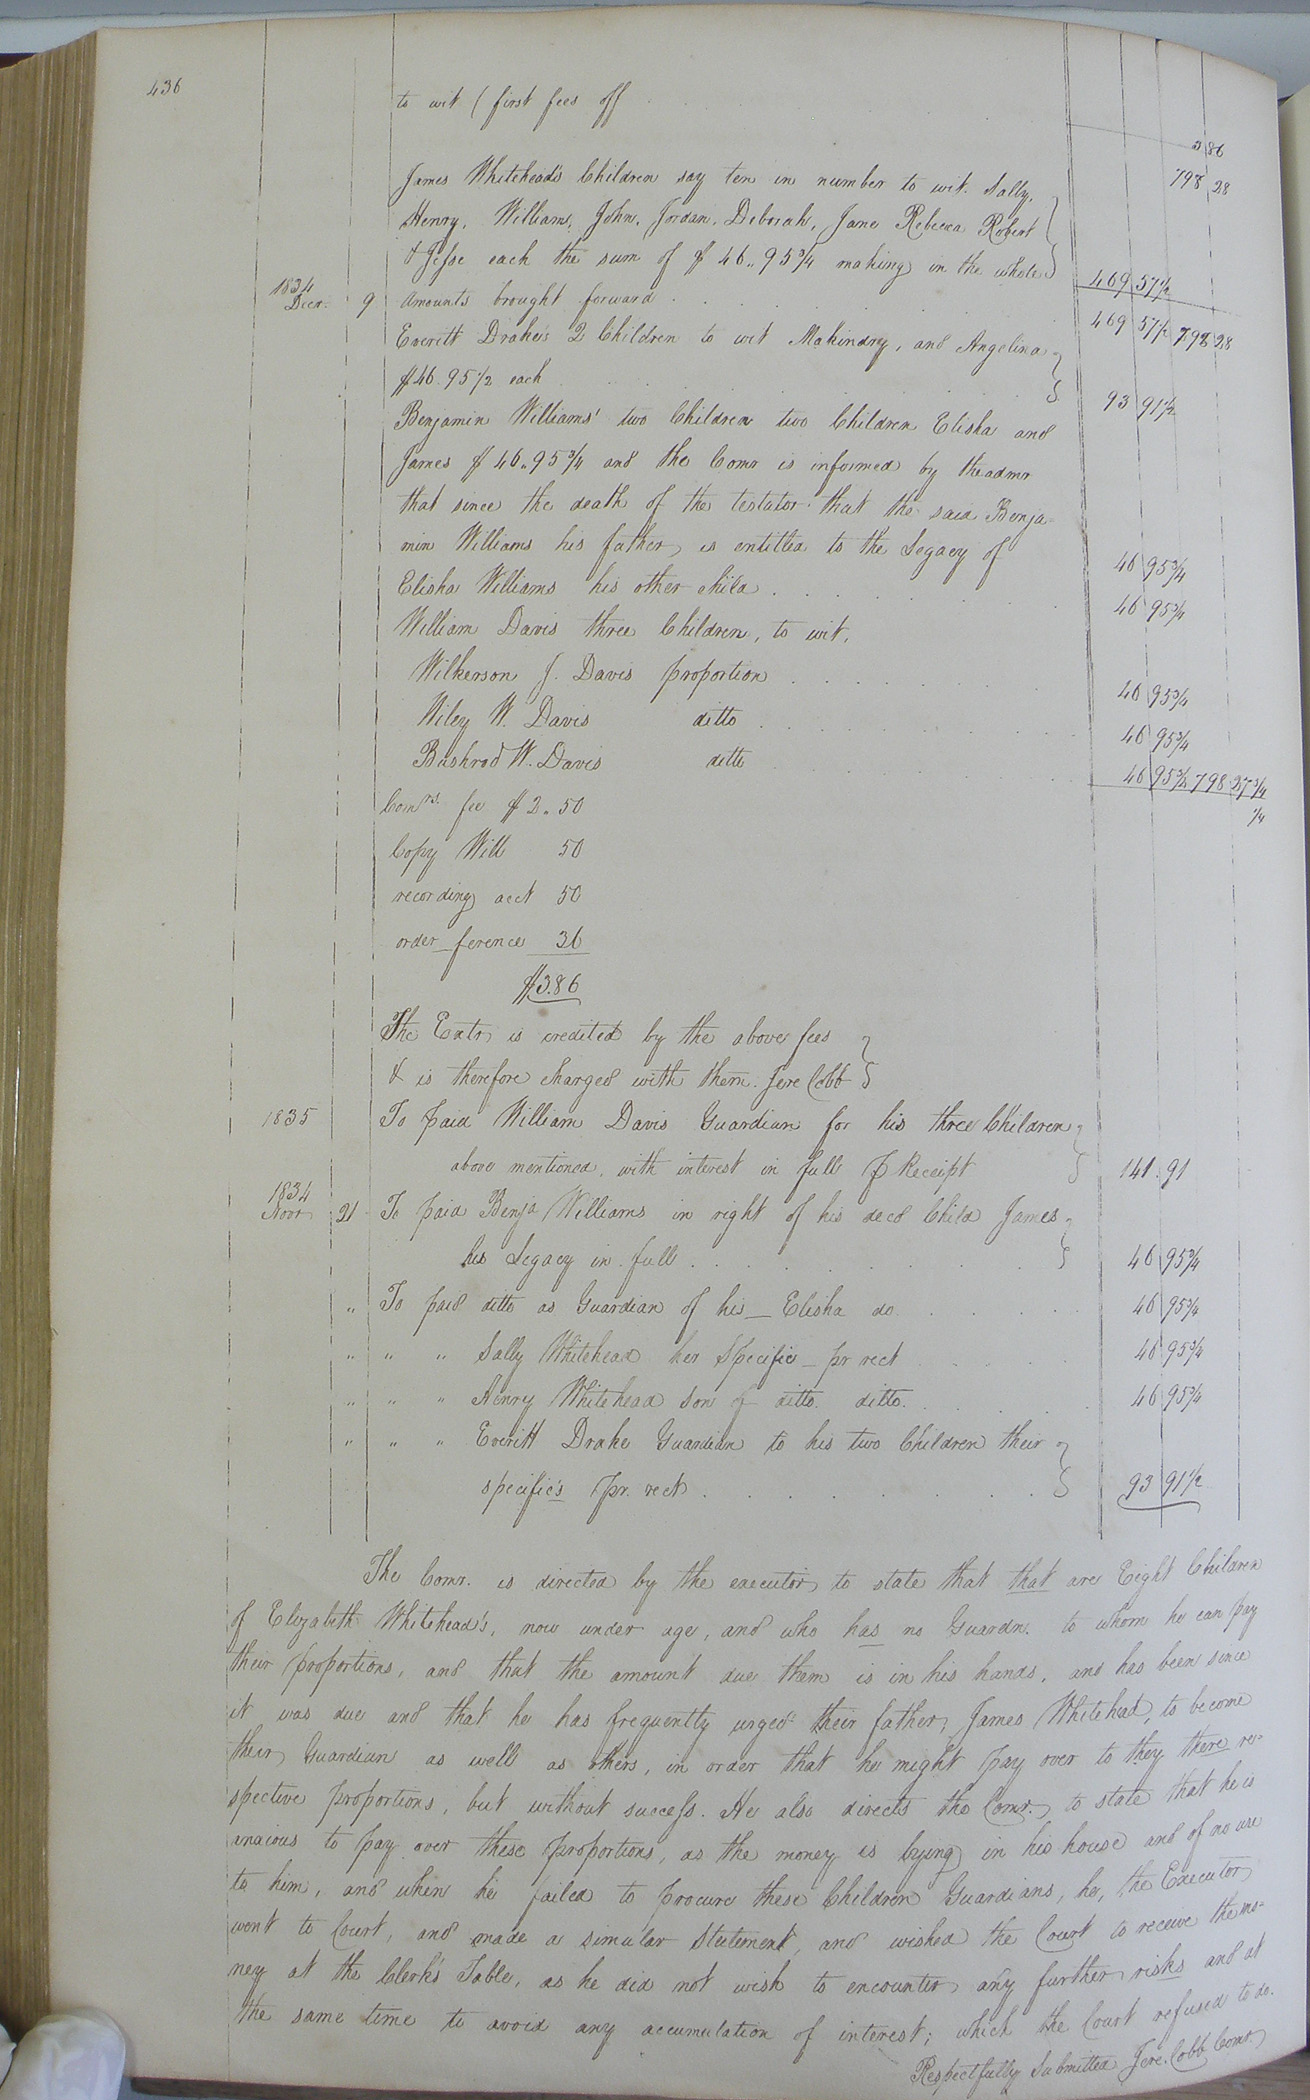 436
to wit ( first fees off . . . 3 86
798 28
James Whitehead's Children say ten in number to wit. Sally,
Henry, William, John, Jordan, Deborah, Jane Rebecca Robert
& Jesse each the sum of $ 46.. 95 3/4 making in the whole 469 57 1/2
1834 Decr. 9 Amounts brought forward . . . 469 57 1/2 798 28
Everitt Drake's 2 Children to wit Makindry, and Angelina
$46. 95 1/2 each . . . 93 91 1/2
Benjamin Williams' two Children two Children Elisha and
James $ 46.. 95 3/4 and the Comr is informed by the admr
that since the death of the testator that the said Benja-
min Williams his father is entitled to the Legacy of 46 95 3/4
Elisha Williams his other child . . . 46 95 3/4
William Davis three Children, to wit,
Wilkerson J. Davis proportion . . . 46 95 3/4
Wiley W. Davis ditto . . . 46 95 3/4
Bushrod W. Davis ditto . . . 46 95 3/4 798 27 3/4
1/4
Comrs. fee $ 2.. 50
Copy Will 50
recording acct 50
order_ference 36
$3.86
The Exetr is credited by the above fees
& is therefore charged with them. Jere Cobb
1835 To paid William Davis Guardian for his three Children
above mentioned, with interest in full p Receipt 141. 91
1834 Novr 21 To paid Benja Williams in right of his decd Child James
his Legacy in full . . . 46 95 3/4
" To paid ditto as Guardian of his _ Elisha do . . . 46 95 3/4
" " " Sally Whitehead her Specific _ pr rect . . . 46 95 3/4
" " " Henry Whitehead son of ditto. ditto. . . . 46 95 3/4
" " " Everitt Drake Guardian to his two Children their
specific's pr. rect . . . 93 91 1/2
The Comr. is directed by the executor to state that that are Eight Children
of Elizabeth Whitehead's, now under age, and who has no Guardn. to whom he can pay
their proportions, and that the amount due them is in his hands, and has been since
it was due and that he has frequently urged their father, James Whitehead, to become
their Guardian as well as others, in order that he might pay over to they there re-
spective proportions, but without success. He also directs the Comr. to state that he is
anxious to pay over these proportions, as the money is lying in his house and of no use
to him, and when he failed to procure these Children Guardians, he, the Executor
went to Court, and made a simular Statement, and wished the Court to receive the mo-
ney at the Clerk's Table, as he did not wish to encounter any further risks and at
the same time to avoid any accumulation of interest; which the Court refused to do.
Respectfully Submitted Jere. Cobb Comr.